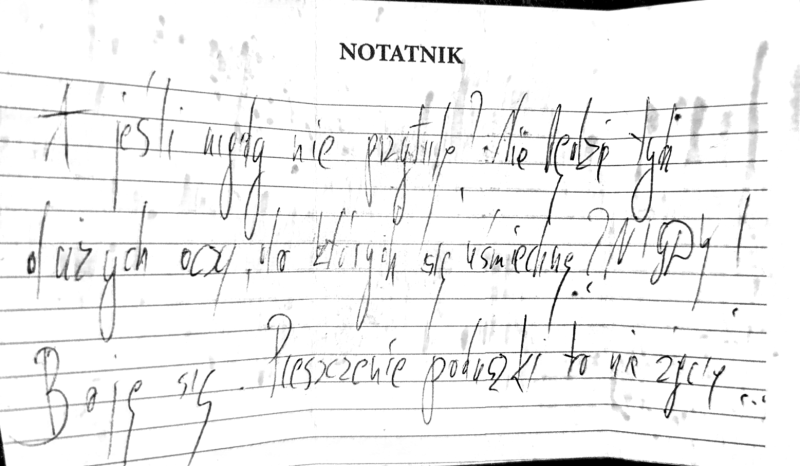 NOTATNIK
A jeśli nigdy nie przytulę? Nie będzie tych
dużych oczu, do których się uśmiechnę? NIGDY!
Boję się. Pieszczenie poduszki to nie życie...